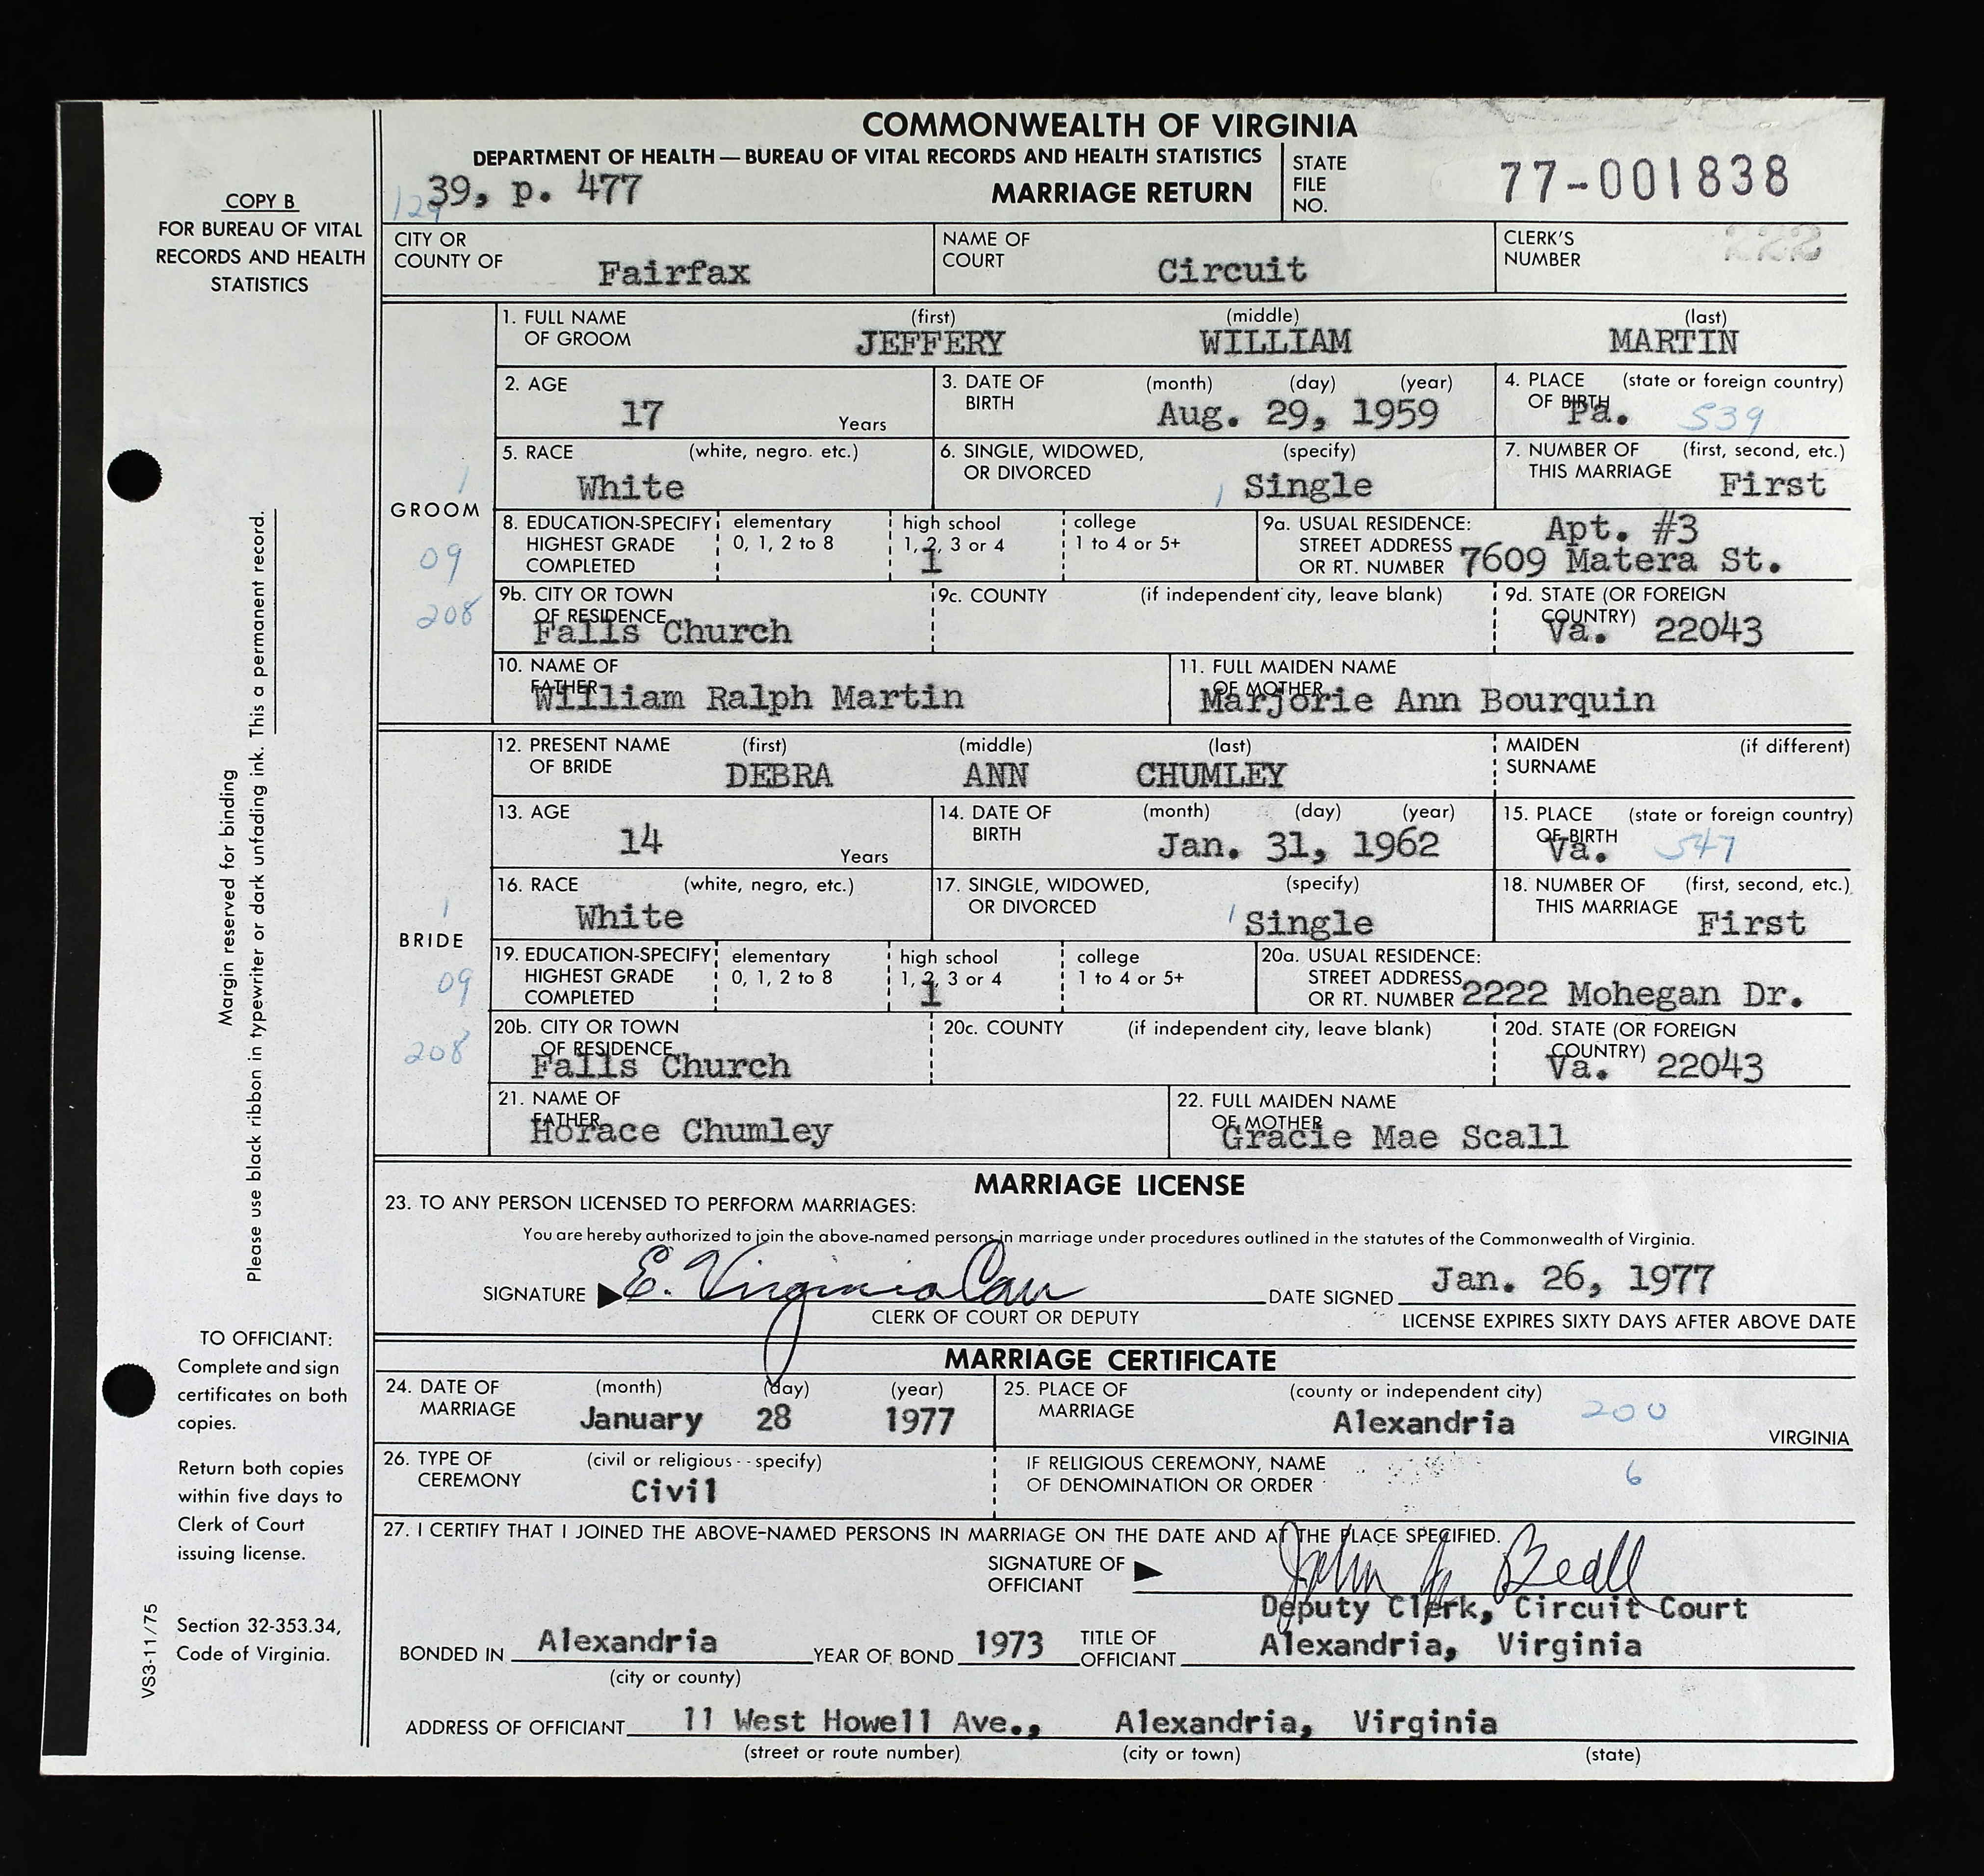 COMMONWEALTH OF VIRGINIA
DEPARTMENT OF HEALTH — BUREAU OF VITAL RECORDS AND HEALTH STATISTICS
129
39, p. 477
MARRIAGE RETURN
STATE FILE NO. 77-001838
COPY B
FOR BUREAU OF VITAL
RECORDS AND HEALTH
STATISTICS
CITY OR COUNTY OF Fairfax
NAME OF COURT Circuit
CLERK'S NUMBER 222
GROOM
1
09
208
1. FULL NAME OF GROOM (first) JEFFERY (middle) WILLIAM (last) MARTIN
2. AGE 17 Years
3. DATE OF BIRTH (month) (day) (year) Aug. 29, 1959
4. PLACE OF BIRTH (state or foreign country) Pa. 539
5. RACE (white, negro. etc.) White
6. SINGLE, WIDOWED, OR DIVORCED (specify) 1 Single
7. NUMBER OF THIS MARRIAGE (first, second, etc.) First
8. EDUCATION-SPECIFY HIGHEST GRADE COMPLETED elementary 0, 1, 2 to 8 high school 1, 2, 3 or 4 1 college 1 to 4 or 5+
9a. USUAL RESIDENCE: STREET ADDRESS OR RT. NUMBER Apt. #3 7609 Matera St.
9b. CITY OR TOWN OF RESIDENCE Falls Church
9c. COUNTY (if independent city, leave blank)
9d. STATE (OR FOREIGN COUNTRY) Va. 22043
10. NAME OF FATHER William Ralph Martin
11. FULL MAIDEN NAME OF MOTHER Marjorie Ann Bourquin
BRIDE
1
09
208
12. PRESENT NAME OF BRIDE (first) DEBRA (middle) ANN (last) CHUMLEY
MAIDEN SURNAME (if different)
13. AGE 14 Years
14. DATE OF BIRTH (month) (day) (year) Jan. 31, 1962
15. PLACE OF BIRTH (state or foreign country) Va. 547
16. RACE (white, negro, etc.) White
17. SINGLE, WIDOWED, OR DIVORCED (specify) 1 Single
18. NUMBER OF THIS MARRIAGE (first, second, etc.) First
19. EDUCATION-SPECIFY HIGHEST GRADE COMPLETED elementary 0, 1, 2 to 8 high school 1, 2, 3 or 4 1 college 1 to 4 or 5+
20a. USUAL RESIDENCE: STREET ADDRESS OR RT. NUMBER 2222 Mohegan Dr.
20b. CITY OR TOWN OF RESIDENCE Falls Church
20c. COUNTY (if independent city, leave blank)
20d. STATE (OR FOREIGN COUNTRY) Va. 22043
21. NAME OF FATHER Horace Chumley
22. FULL MAIDEN NAME OF MOTHER Gracie Mae Scall
MARRIAGE LICENSE
23. TO ANY PERSON LICENSED TO PERFORM MARRIAGES:
You are hereby authorized to join the above-named persons in marriage under procedures outlined in the statutes of the Commonwealth of Virginia.
SIGNATURE E. Virginia Carr DATE SIGNED Jan. 26, 1977
CLERK OF COURT OR DEPUTY
LICENSE EXPIRES SIXTY DAYS AFTER ABOVE DATE
MARRIAGE CERTIFICATE
24. DATE OF MARRIAGE (month) January (day) 28 (year) 1977
25. PLACE OF MARRIAGE (county or independent city) Alexandria 200 VIRGINIA
26. TYPE OF CEREMONY (civil or religious - - specify) Civil
IF RELIGIOUS CEREMONY, NAME OF DENOMINATION OR ORDER 6
27. I CERTIFY THAT I JOINED THE ABOVE-NAMED PERSONS IN MARRIAGE ON THE DATE AND AT THE PLACE SPECIFIED.
SIGNATURE OF OFFICIANT John Beall
Deputy Clerk, Circuit Court
BONDED IN Alexandria YEAR OF BOND 1973 TITLE OF OFFICIANT Alexandria, Virginia
(city or county)
ADDRESS OF OFFICIANT 11 West Howell Ave., Alexandria, Virginia
(street or route number) (city or town) (state)
Margin reserved for binding
Please use black ribbon in typewriter or dark unfading ink. This a permanent record.
TO OFFICIANT:
Complete and sign
certificates on both
copies.
Return both copies
within five days to
Clerk of Court
issuing license.
Section 32-353.34,
Code of Virginia.
VS3-11/75